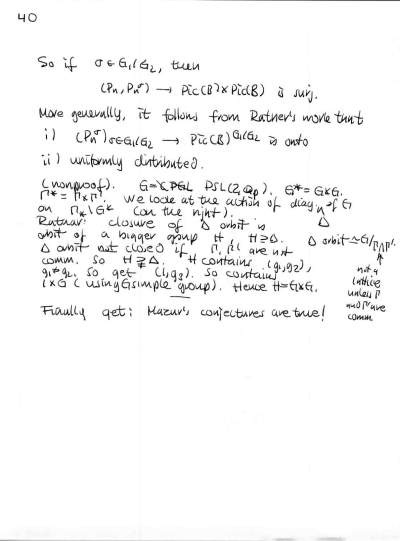 40
So if σ∈G₁/G₂, then
(Pn, Pn^σ) → Pic(B)×Pic(B) is surj.
More generally, it follows from Ratner's work that
i) (Pn^σ)σ∈G₁/G₂ → Pic(B)^G₁/G₂ is onto
ii) uniformly distributed.
(nonproof). G= PSL(2,Qp). G*=G×G.
Γ*=Γ×Γ'. We look at the action of diag in of G
on Γ*\G* (on the right). Δ
Ratner: closure of Δ orbit is
orbit of a bigger group H, H⊇Δ. Δ orbit ~G/Γ∩Γ'.
Δ orbit not closed if Γ, Γ' are not
comm. So H⊋Δ. H contains (g₁,g₂),
g₁≠g₂, so get (1,g₃). So contains
1×G (using G simple group). Hence H=G×G.
not a
lattice
unless Γ
and Γ' are
comm
Finally get: Mazur's conjectures are true!